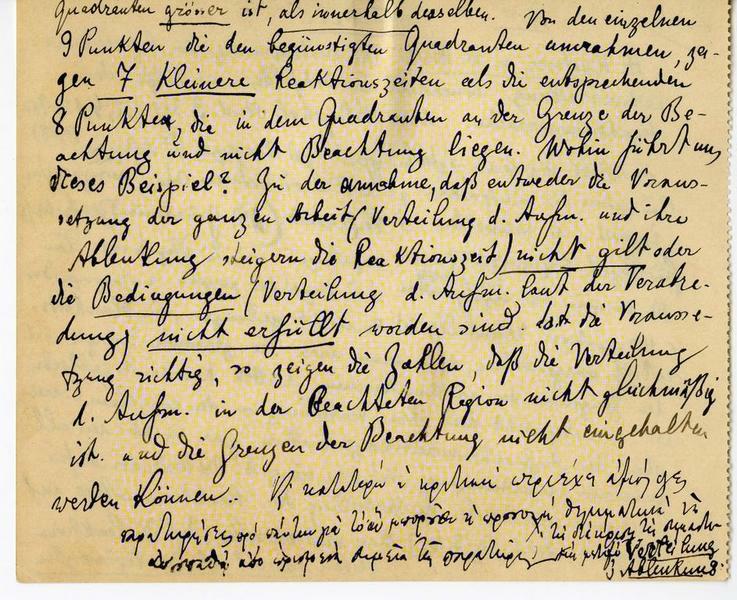 Quadranten grösser ist, als innerhalb desselben. Von den einzelnen
9 Punkten die den begünstigten Quadranten umrahmen, zei-
gen 7 kleinere Reaktionszeiten als die entsprechenden
8 Punkten, die in dem Quadranten an der Grenze der Be-
achtung und nicht Beachtung liegen. Wohin führt uns
dieses Beispiel? Zu der Annahme, daß entweder die Voraus-
setzung der ganzen Arbeit (Verteilung d. Aufm. und ihre
Ablenkung steigern die Reaktionszeit) nicht gilt oder
die Bedingungen (Verteilung d. Aufm. laut der Verabre-
dung) nicht erfüllt worden sind. Ist die Vorausse-
tzung richtig, so zeigen die Zahlen, daß die Verteilung
d. Aufm. in der beachteten Region nicht gleichmäßig
ist. und die Grenzen der Beachtung nicht eingehalten
werden können.. ἡ κριτικὴ περιέχει
τῆς
ἀπὸ σημεῖα τῆς Verteilung
Ablenkung.